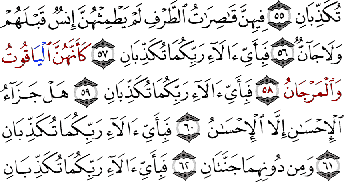 تُكَذِّبَانِ ٥٥ فِيهِنَّ قَٰصِرَٰتُ ٱلطَّرْفِ لَمْ يَطْمِثْهُنَّ إِنسٌ قَبْلَهُمْ
وَلَا جَآنٌّ ٥٦ فَبِأَيِّ ءَالَآءِ رَبِّكُمَا تُكَذِّبَانِ ٥٧ كَأَنَّهُنَّ ٱلْيَاقُوتُ
وَٱلْمَرْجَانُ ٥٨ فَبِأَيِّ ءَالَآءِ رَبِّكُمَا تُكَذِّبَانِ ٥٩ هَلْ جَزَآءُ
ٱلْإِحْسَٰنِ إِلَّا ٱلْإِحْسَٰنُ ٦٠ فَبِأَيِّ ءَالَآءِ رَبِّكُمَا تُكَذِّبَانِ
٦١ وَمِن دُونِهِمَا جَنَّتَانِ ٦٢ فَبِأَيِّ ءَالَآءِ رَبِّكُمَا تُكَذِّبَانِ